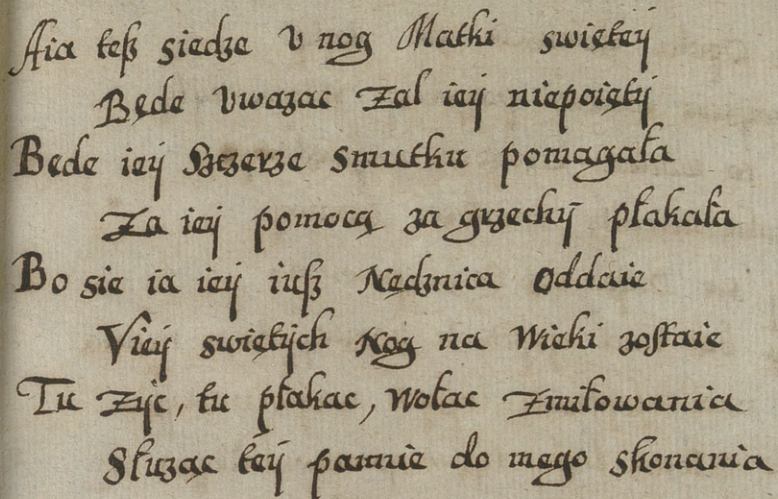 Aia teß siedze v nog Matki swiętey
Będe vwazac Zal iey niepoięty
Bede iey Szczerze smutku pomagała
Za iey pomocą za grzechy płakała
Bo sie ia iey iusz Nędznica oddaie
V iey swiętych Nog na Wieki zostaie
Tu Zyc, tu płakac, Wołac Zmiłowania
Słuząc tey pannie do mego skonania